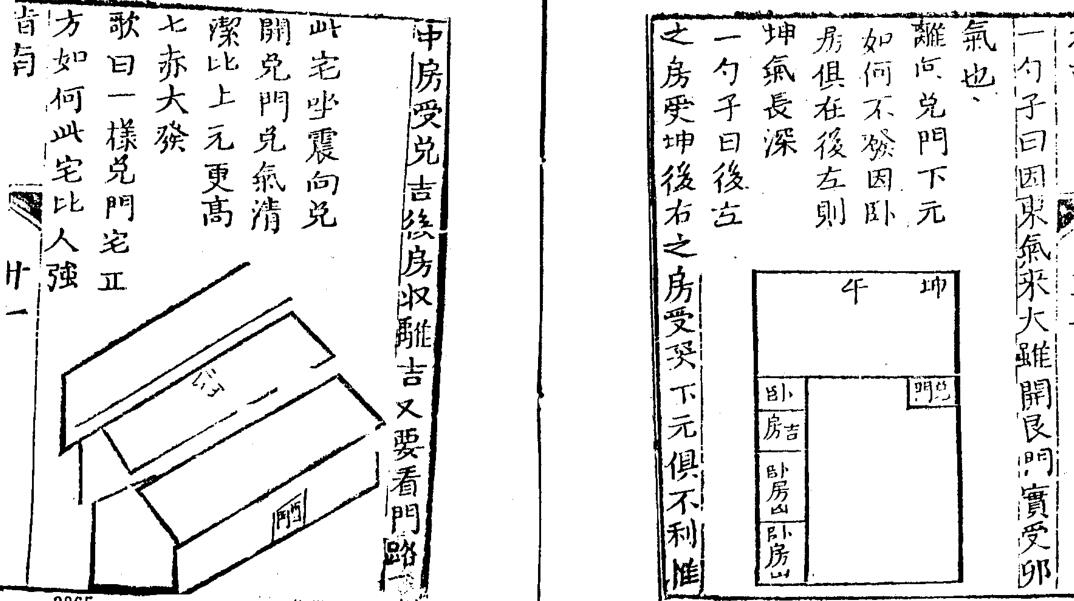 一勺子曰因東氣來大雖開艮門實受卯
氣也
離向兑門下元
如何不發因卧
房俱在後左則
坤氣長深
一勺子曰後左
之房受坤後右之房受癸下元俱不利惟
午
坤
兑門
卧房吉
卧房凶
卧房凶
中房受兑吉後房収離吉又要看門路
此宅坐震向兑
開兑門兑氣清
潔比上元更高
七赤大發
歌曰一樣兑門宅正
方如何此宅比人強
廿一